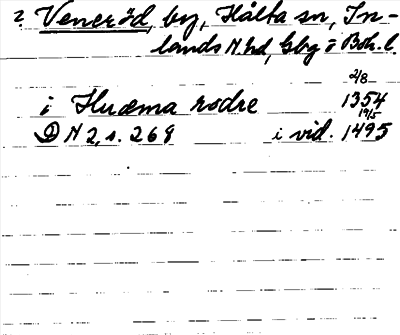 ? Veneröd, by, Hålta sn, In-
lands N hd, Gbg o Boh. l.
2/8
i Huæma rodre 1354
19/5
DN 2, s. 269 i vid. 1495